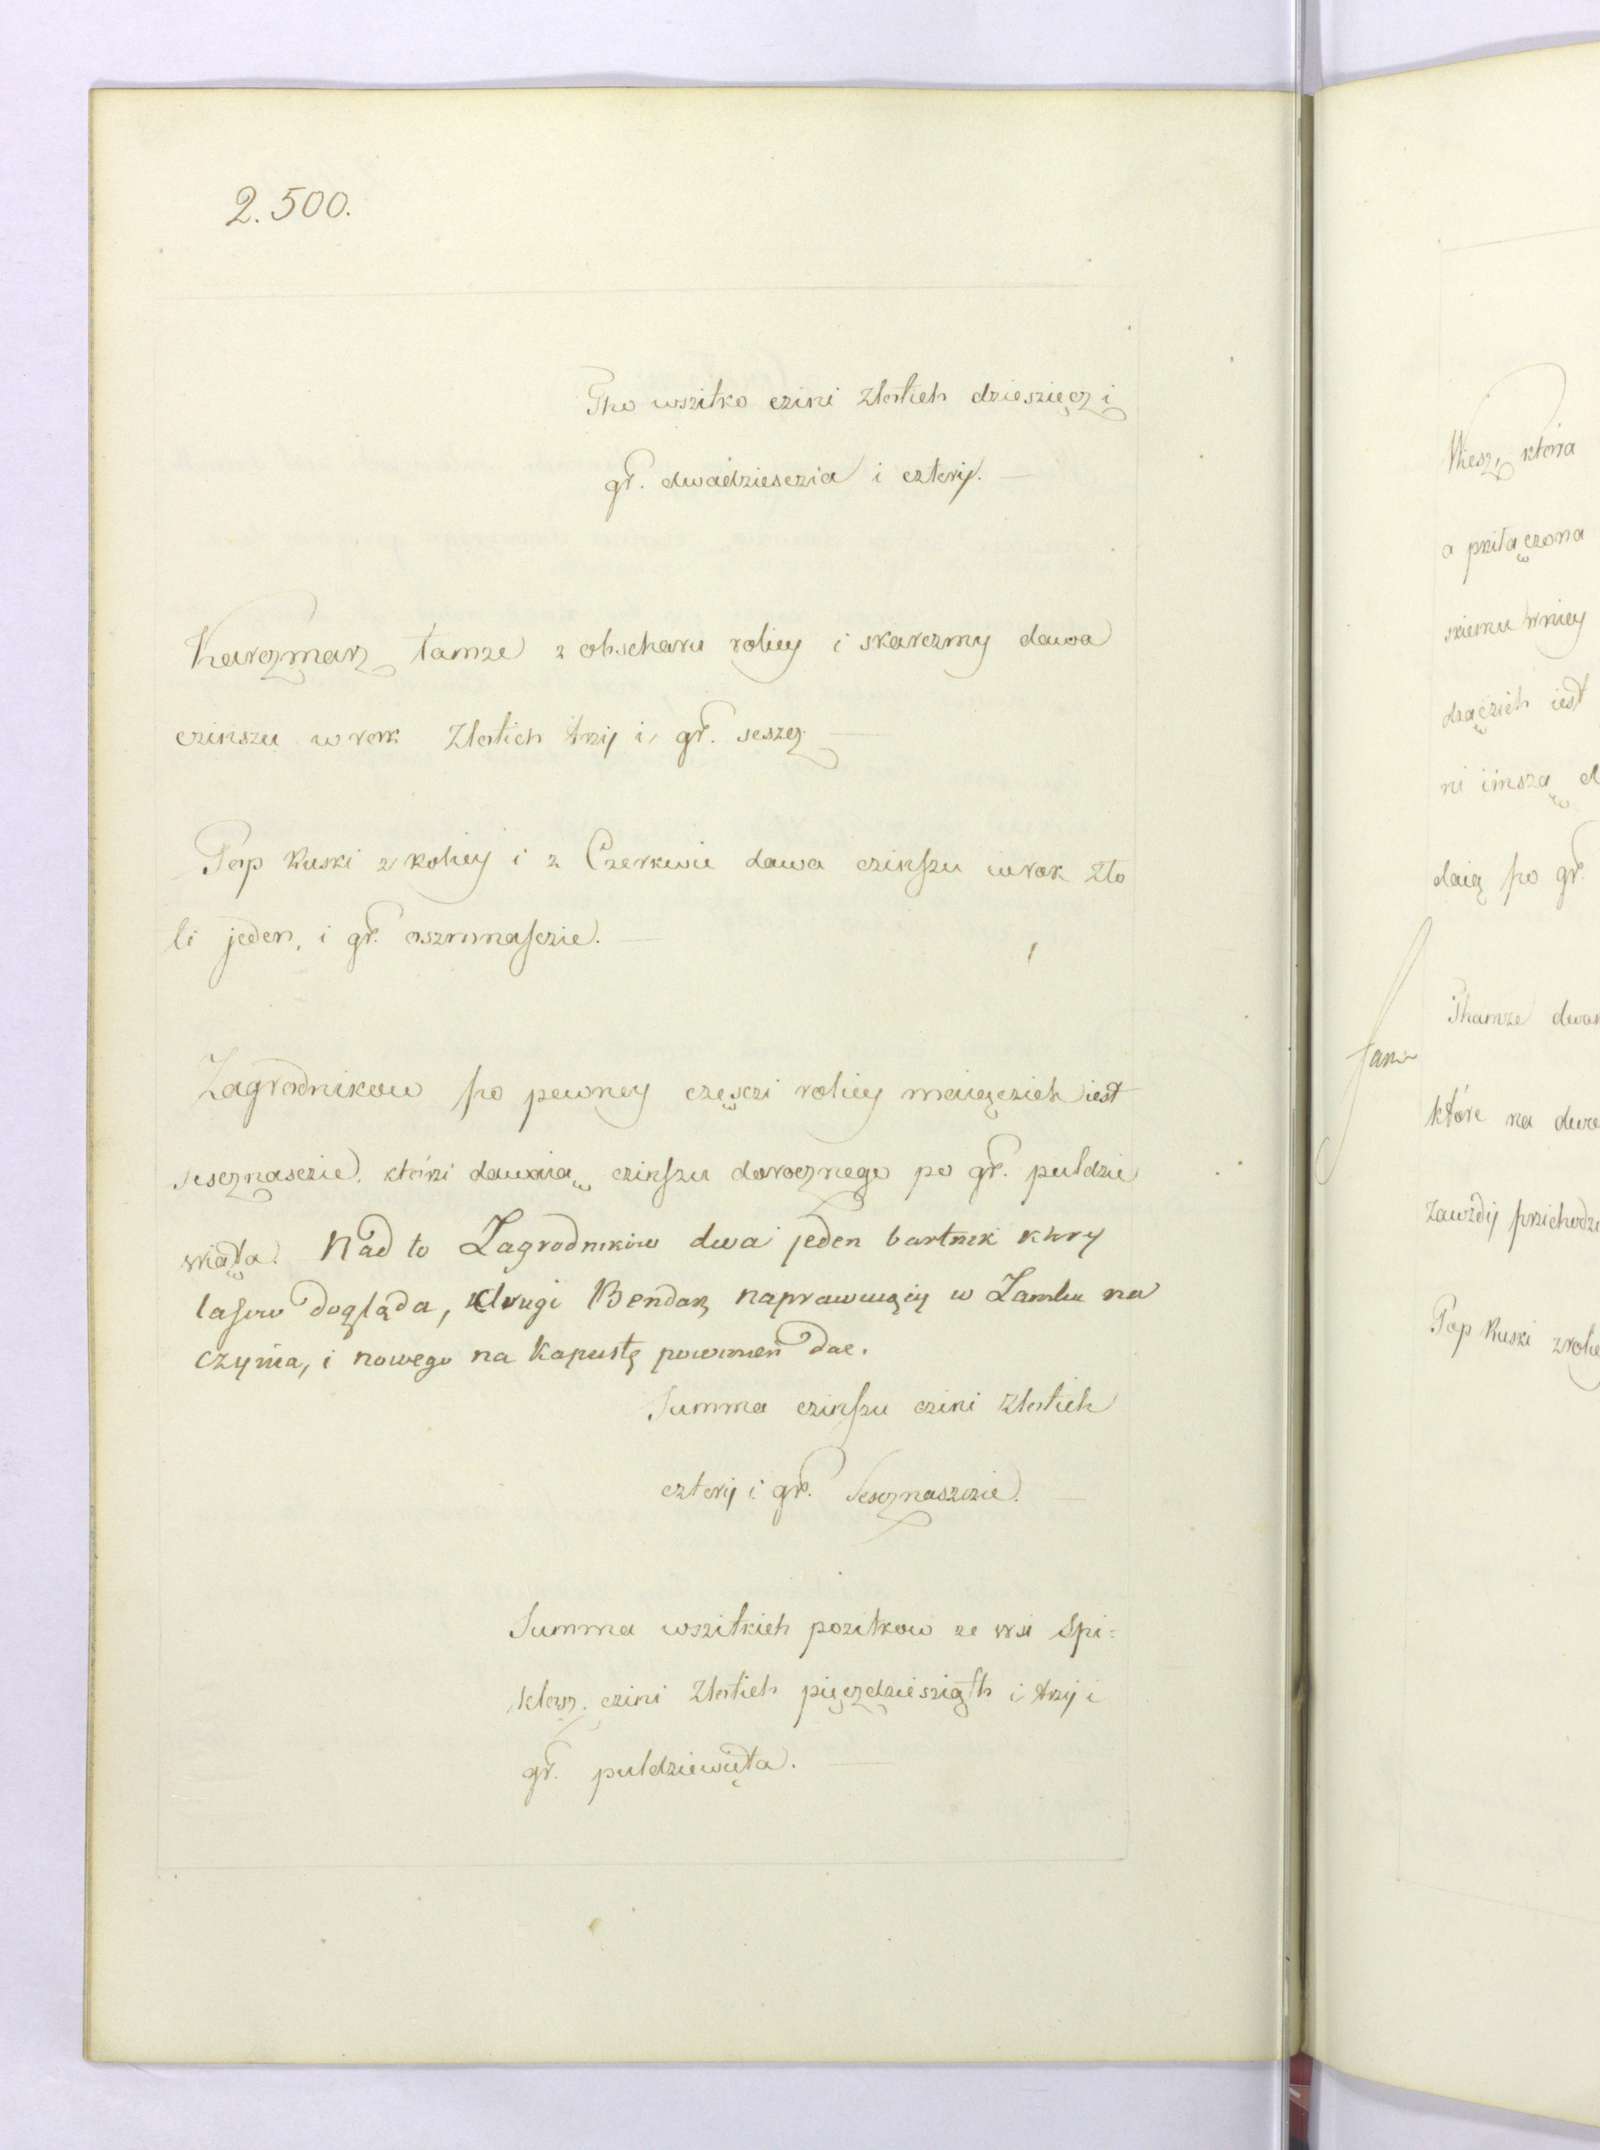 2.500.
Tho wszitko czini Zlotich dzieszięcz i
gr. dwadziesczia i czterij. —
Karczmarz tamze z obscharu roliey i skarczmy dawa
czinszu w rok Zlotich trzij i gr. sescz —
Pop Ruski z roliey i z Czerkwie dawa czinszu w rok zło
ti jeden, i gr. oszmnasczie. —
Zagrodnikow po pewney częsczi roliey maiączich iest
sescznasczie. którzi dawaią czinszu dorocznego po gr. puldzie
wiąta. Nad to Zagrodników dwa jeden bartnik ktury
lasow dogląda, drugi Bendarz naprawuiący w Zamku na
czynia, i nowego na Kapustę powinien dac.
Summa czinszu czini Zlotich
czterij i gr. Sescznaszczie. —
Summa wszitkich pozitkow ze wsi Spi=
klosz. czini Zlotich pięczdziesziąth i trzij i
gr. puldziewięta. —
Wiesz, która
a prziłączona
skiemu wniey
dzączich iest
ni inszą
daią po gr.
Thamze
które na
Zawzdij przichodzi
Pop Ruski